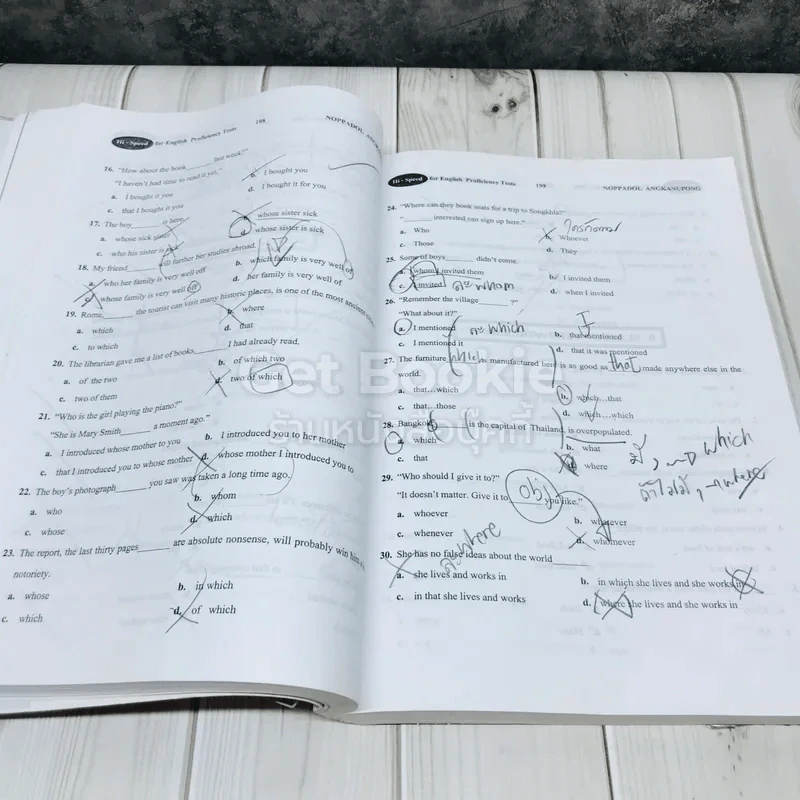 Hi - Speed for English Proficiency Tests 198 NOPPADOL
16. "How about the book______ last week?"
"I haven't had time to read it yet."
a. I bought it you
b. I bought you
c. that I bought it you
d. I bought it for you
17. The boy______ is here.
a. whose sick sister
b. whose sister sick
c. who his sister is sick
d. whose sister is sick
18. My friend______ will further her studies abroad.
a. who her family is very well off
b. which family is very well of
c. whose family is very well off
d. her family is very well of
19. Rome______ the tourist can visit many historic places, is one of the most ancient
a. which
b. where
c. to which
d. that
20. The librarian gave me a list of books______ I had already read.
a. of the two
b. of which two
c. two of them
d. two of which
21. "Who is the girl playing the piano?"
"She is Mary Smith______ a moment ago."
a. I introduced whose mother to you
b. I introduced you to her mother
c. that I introduced you to whose mother
d. whose mother I introduced you to
22. The boy's photograph______ you saw was taken a long time ago.
a. who
b. whom
c. whose
d. which
23. The report, the last thirty pages______ are absolute nonsense, will probably win him
notoriety.
a. whose
b. in which
c. which
d. of which
Hi - Speed for English Proficiency Tests 199 NOPPADOL ANGKANUPONG
24. "Where can they book seats for a trip to Songkhla?"
"______ interested can sign up here."
a. Who
b. Whoever
c. Those
d. They
25. Some of boys______ didn't come.
a. whom I invited them
b. I invited them
c. I invited
ละ whom
d. when I invited
26. "Remember the village______?"
"What about it?"
a. I mentioned
ละ which
b. that mentioned
I
c. I mentioned it
d. that it was mentioned
27. The furniture which is manufactured here is as good as that made anywhere else in the
world.
a. that...which
b. which...that
c. that...those
d. which...which
28. Bangkok______ is the capital of Thailand, is overpopulated.
a. which
b. what
c. that
d. where
มี , → which
ถ้าไม่มี , → where
29. "Who should I give it to?"
"It doesn't matter. Give it to obj you like."
a. whoever
b. whatever
c. whenever
d. whomever
ละ where
30. She has no false ideas about the world______
a. she lives and works in
b. in which she lives and she works in
c. in that she lives and works
d. where she lives and she works in
Get Bookie
ร้านหนังสือบุ๊คกี้